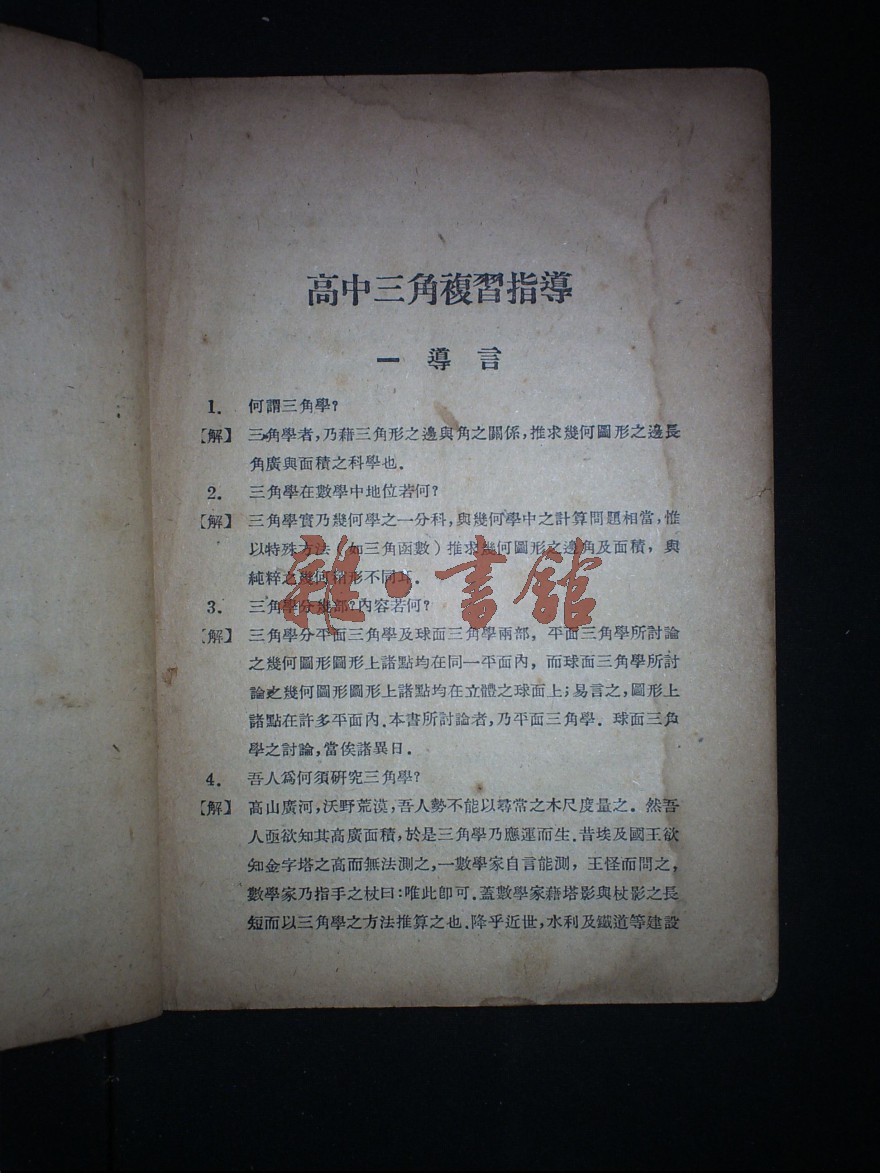 高中三角複習指導
一 導 言
1. 何謂三角學?
【解】 三角學者,乃藉三角形之邊與角之關係,推求幾何圖形之邊長
角廣與面積之科學也.
2. 三角學在數學中地位若何?
【解】 三角學實乃幾何學之一分科,與幾何學中之計算問題相當,惟
以特殊方法(如三角函數)推求幾何圖形之邊角及面積,與
純粹之幾何稍形不同耳.
3. 三角學分幾部?內容若何?
【解】 三角學分平面三角學及球面三角學兩部,平面三角學所討論
之幾何圖形圖形上諸點均在同一平面內,而球面三角學所討
論之幾何圖形圖形上諸點均在立體之球面上;易言之,圖形上
諸點在許多平面內.本書所討論者,乃平面三角學. 球面三角
學之討論,當俟諸異日.
4. 吾人爲何須研究三角學?
【解】 高山廣河,沃野荒漠,吾人勢不能以尋常之木尺度量之. 然吾
人亟欲知其高廣面積,於是三角學乃應運而生.昔埃及國王欲
知金字塔之高而無法測之,一數學家自言能測,王怪而問之,
數學家乃指手之杖曰:唯此卽可.蓋數學家藉塔影與杖影之長
短而以三角學之方法推算之也.降乎近世,水利及鐵道等建設
雜·書館